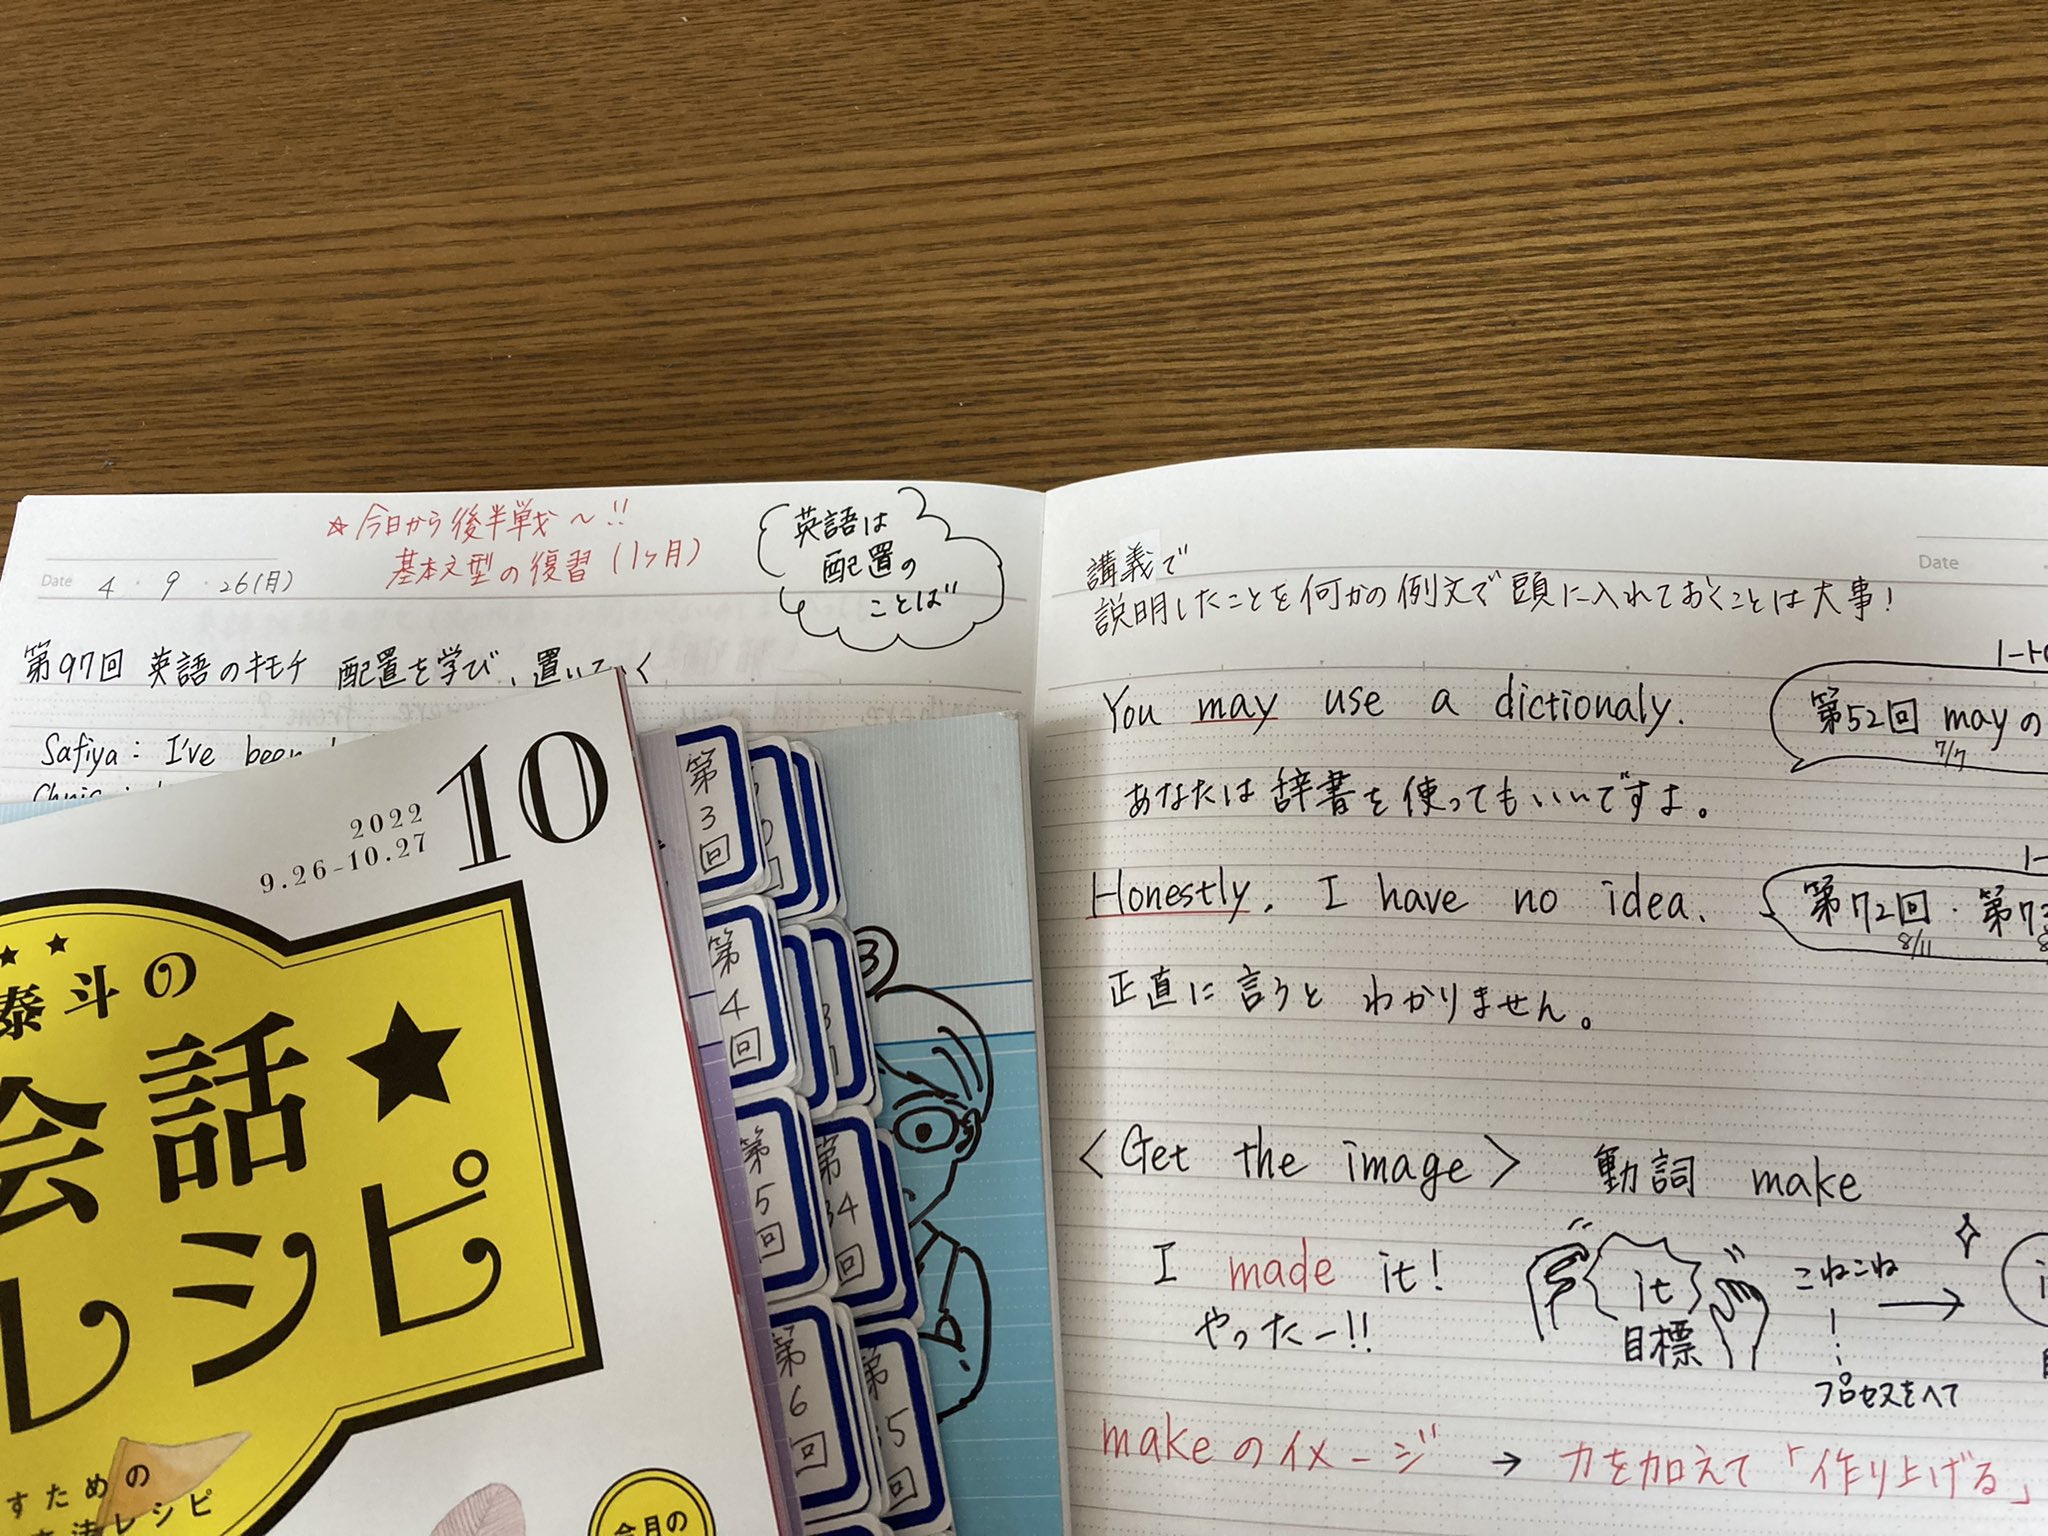 ☆今日から後半戦〜!!
基本文型の復習(1ヶ月)
Date 4・9・26(月)
英語は
配置の
ことば
第97回 英語のキモチ 配置を学び、置いていく
Safiya: I've been
Chris:
2022
9.26-10.27
10
泰斗の
会話★
レシピ
すための
レシピ
今月の
第3回
第4回
第5回
第6回
34回
Date
講義で
説明したことを何かの例文で頭に入れておくことは大事!
You may use a dictionaly.
第52回 mayの
7/7
あなたは辞書を使ってもいいですよ。
Honestly, I have no idea.
第72回・第73
8/11
正直に言うと わかりません。
<Get the image> 動詞 make
I made it!
やったー!!
it
目標
こねこね
→
プロセスをへて
makeのイメージ → 力を加えて「作り上げる」